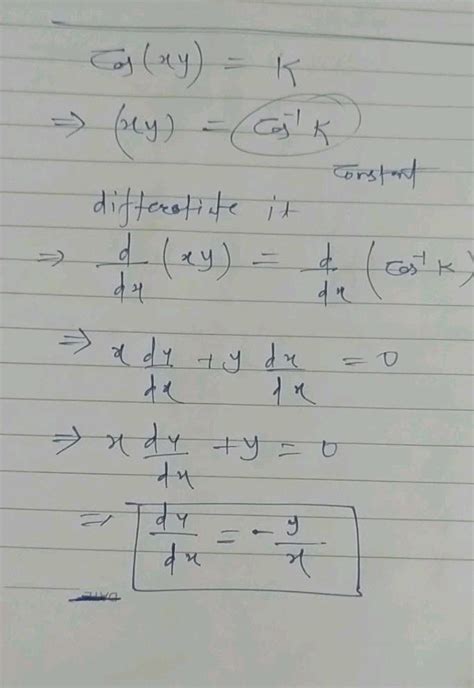 Cos(xy) = K
⇒ (xy) = Cos⁻¹ K
Constant
differetiate it
⇒ d/dx (xy) = d/dx (Cos⁻¹ K)
⇒ x dy/dx + y dx/dx = 0
⇒ x dy/dx + y = 0
⇒ dy/dx = - y/x
DATE